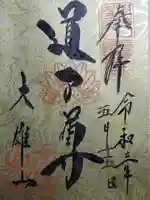 奉拝
令和三年
五月十三日
道了尊
大雄山